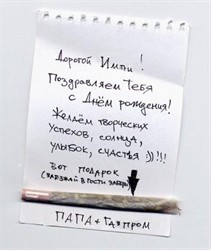 Дорогой Импи!
Поздравляем Тебя
с Днём рождения!
Желаем творческих
успехов, солнца,
улыбок, счастья :))!!!
Вот подарок
(заезжай в гости
ПАПА + Газпром